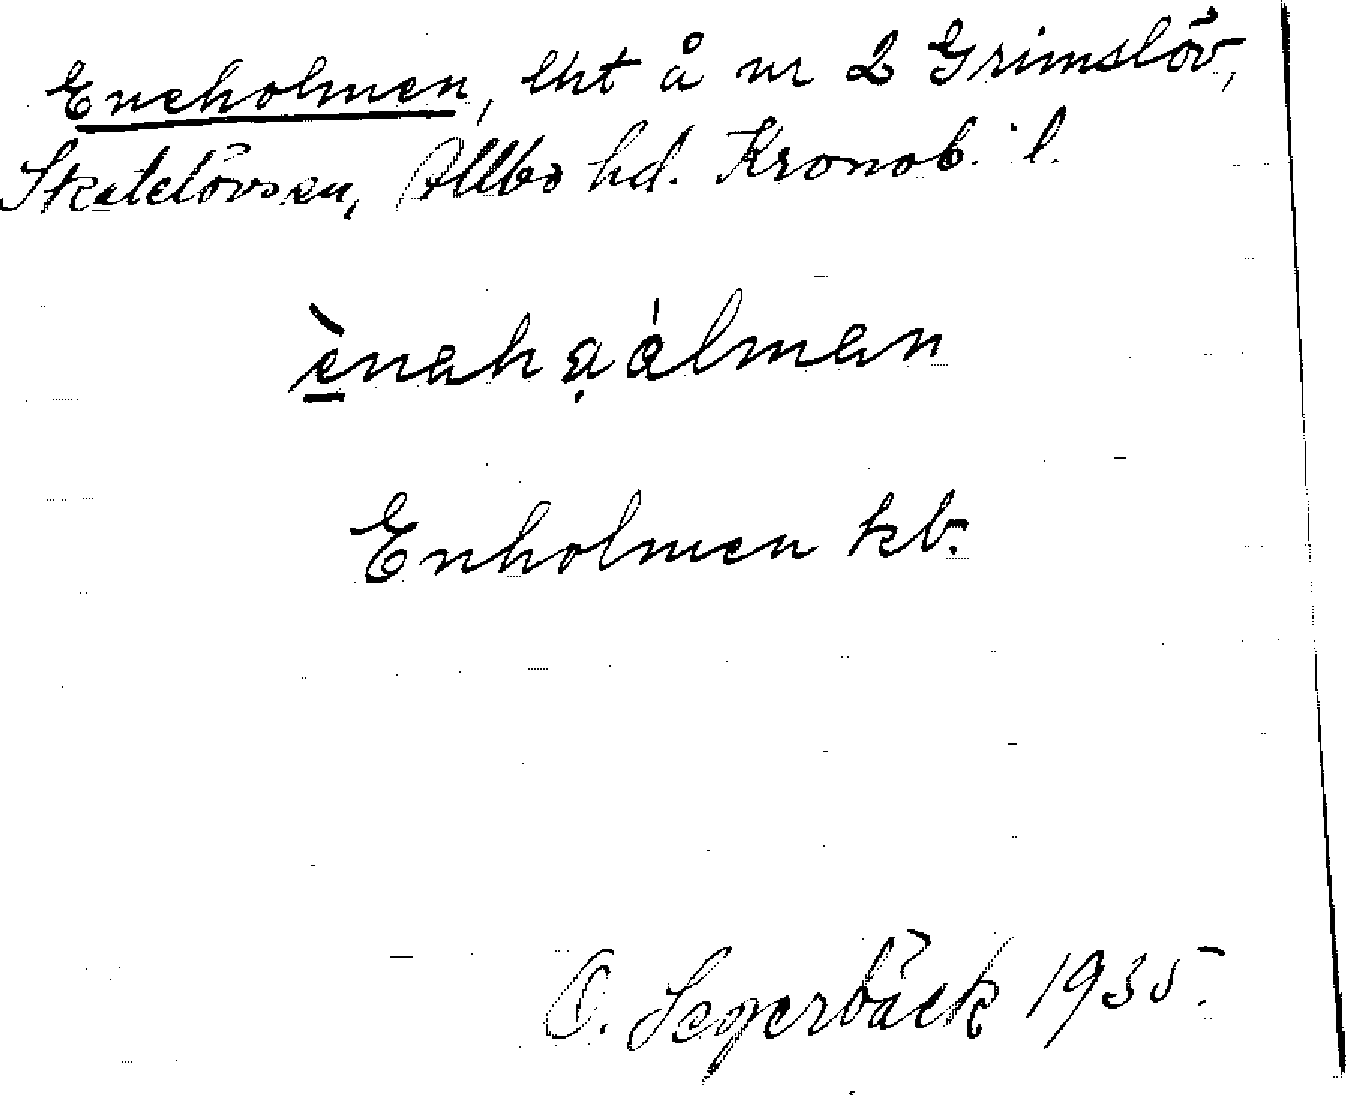 Eneholmen, lht å nr 2 Grimslöv,
Skatelövs sn, Allbo hd. Kronob. l.
ènahaálman
Enholmen kb.
O. Segerbäck 1935.